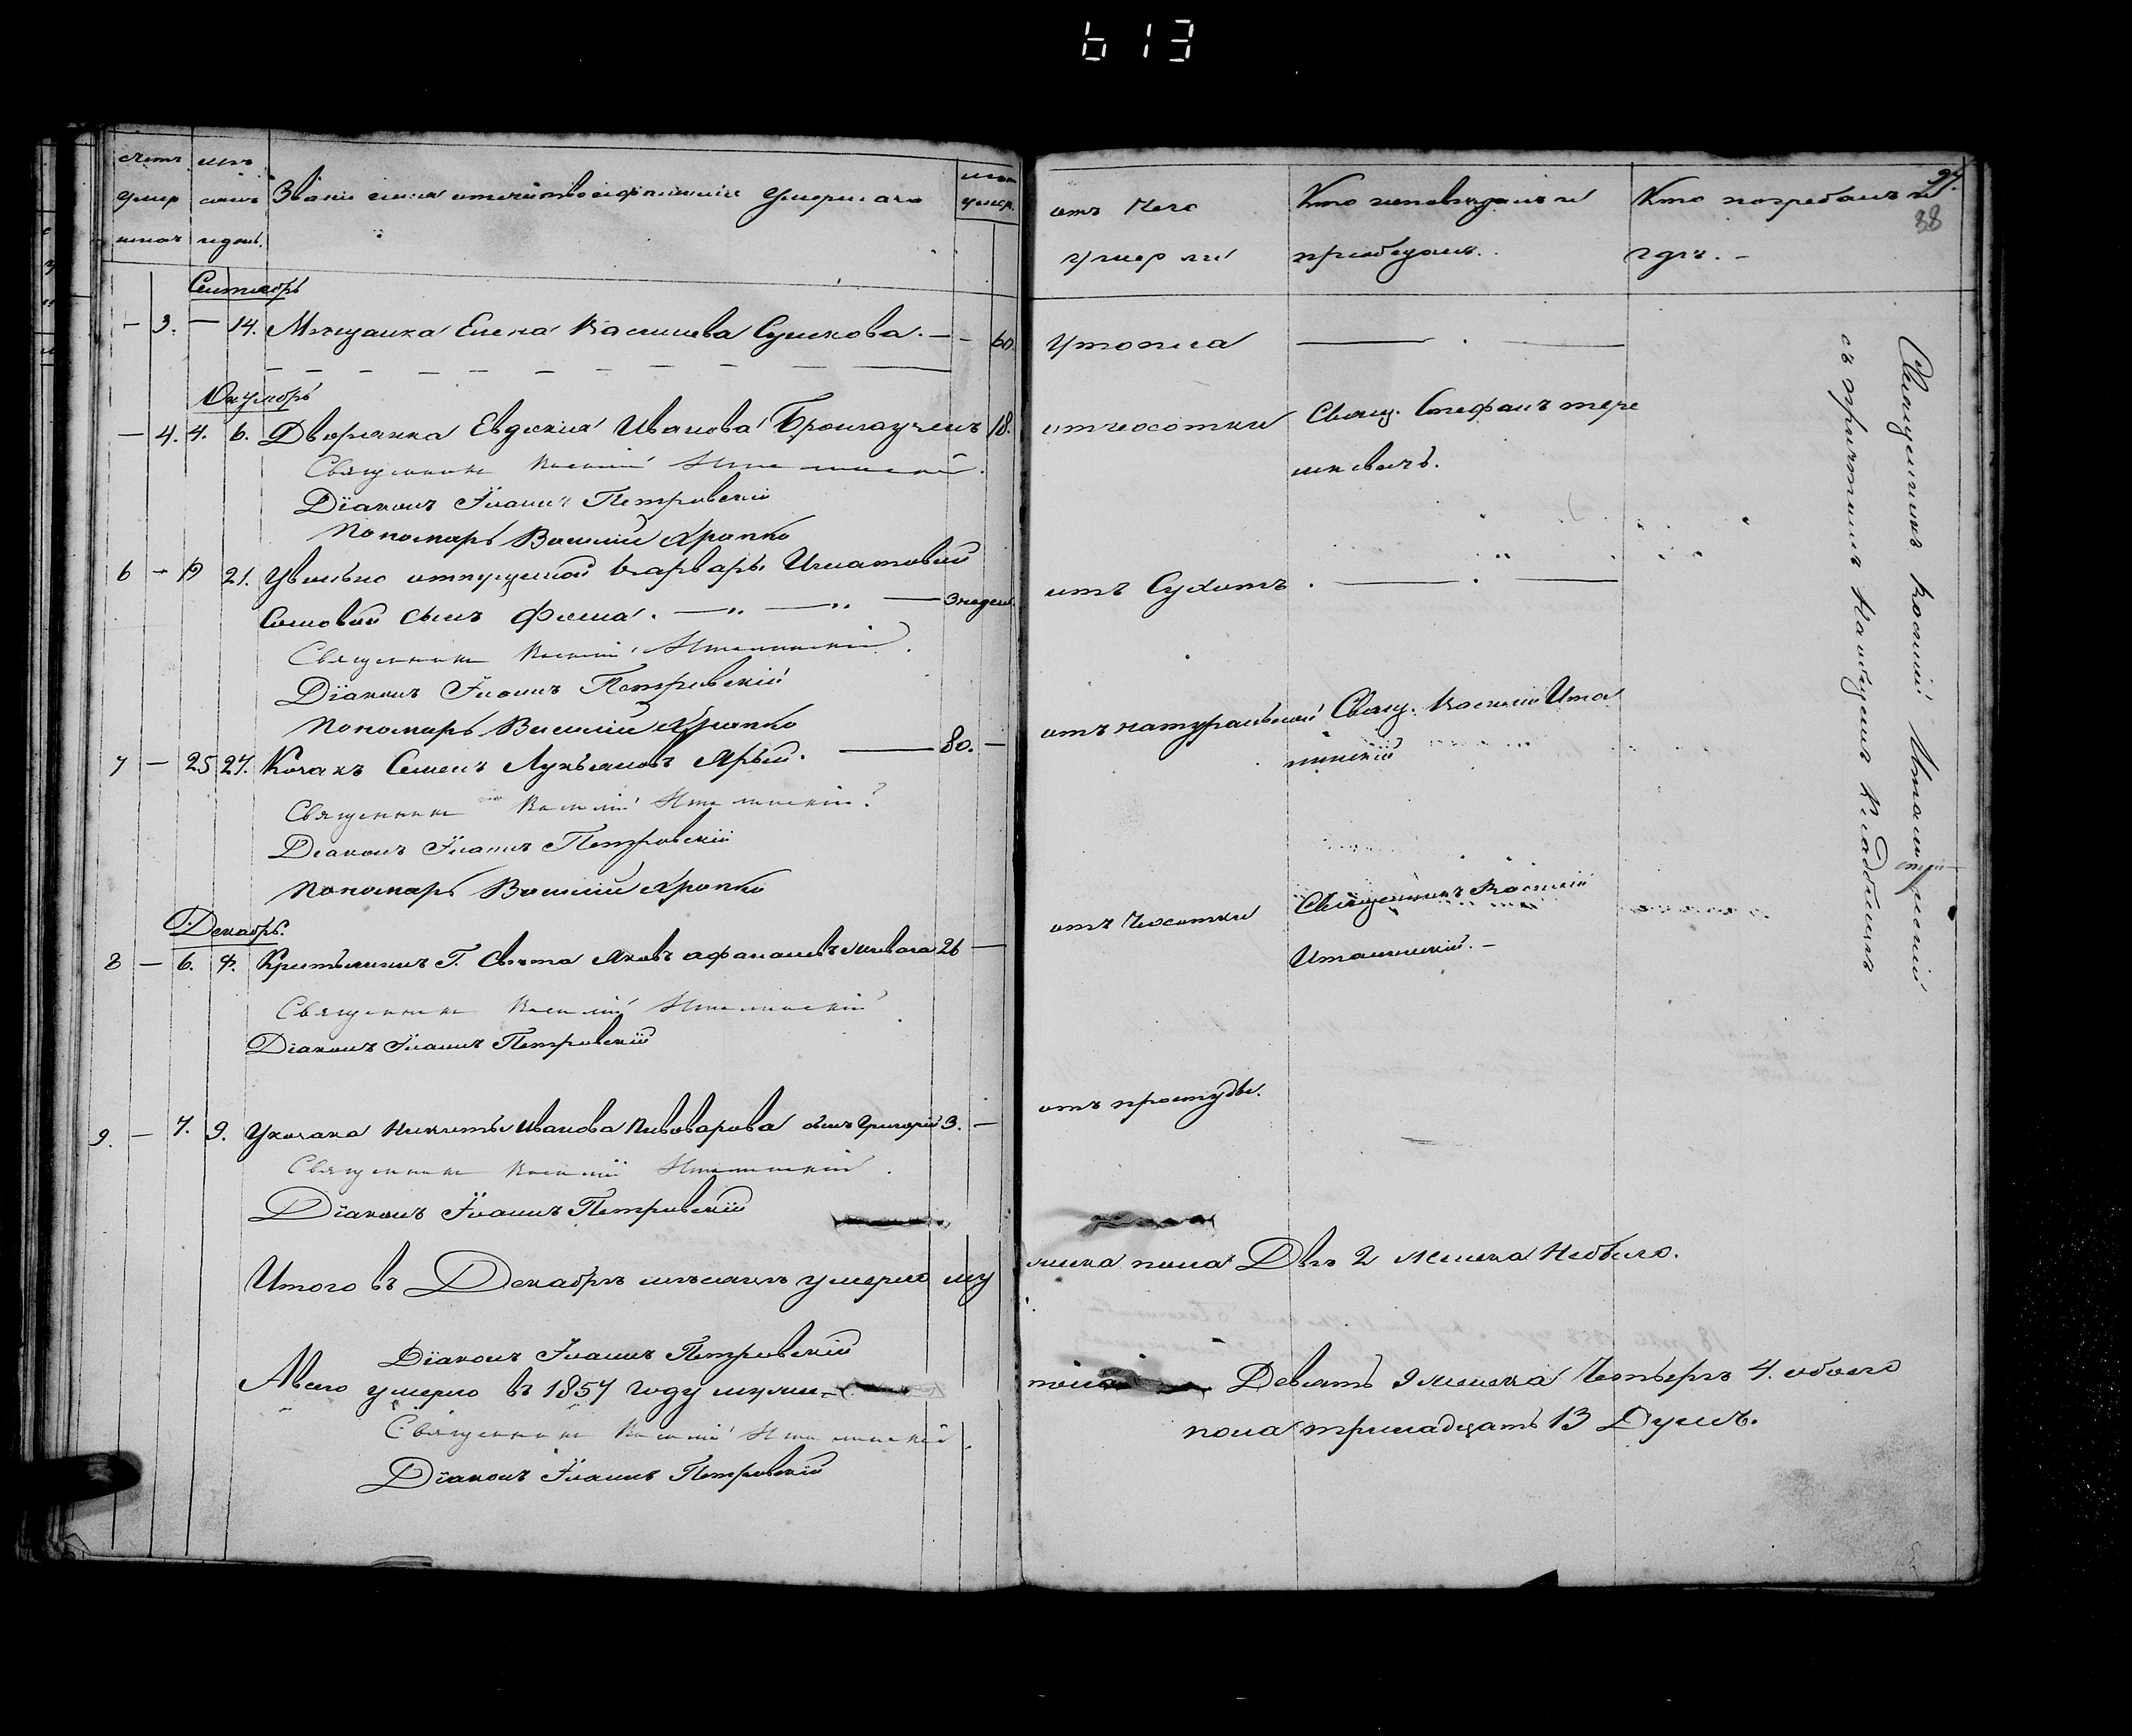 613
счетъ умер шихъ
мѣ сяцъ и день.
Званіе имя отечество и фамиліи умершаго
лѣта умер.
отъ чего умерли
Кто исповѣдалъ и пріобщалъ.
Кто погребалъ и гдѣ.
88
Сентябрь
3. 14. Мѣщанка Елена Василіева Сушкова. 60. утопла
Октябрь
4. 4. 6. Дворянка Евдокія Иванова 18. отъ чосотки Свящ. Стефанъ тере
шкевичъ.
Священникъ Василій Италинскій.
Діаконъ Іоаннъ Петровскій
Пономарь Василій Храпко
6 19 21. Увольно отпущеной Варвары Игнатовой
Сомовой сынъ Фома. 3 недел. отъ Сухотъ.
Священникъ Василій Италинскій.
Діаконъ Іоаннъ Петровскій
Пономарь Василій Храпко
7 25 27. Козакъ Семенъ Лукьяновъ Ярый. 80. отъ натуральной Свящ. Василій Ита
линскій
Священникъ Василій Италинскій
Діаконъ Іоаннъ Петровскій
Пономарь Василій Храпко
Декабрь.
8 6. Крестьянинъ Г. Яковъ Афанасіевъ 26 отъ Чосотки Священникъ Василій
Италинскій.
Священникъ Василій Италинскій
Діаконъ Іоаннъ Петровскій
9. 7. 9. У козака Никиты Иванова Пивоварова сынъ Григорій 3. отъ простуды.
Священникъ Василій Италинскій.
Діаконъ Іоаннъ Петровскій
Итого въ Декабрѣ мѣсяцѣ умерло му жеска пола Два 2 женска Небыло.
Діаконъ Іоаннъ Петровскій
А всего умерло въ 1857 году мужес пола Девять 9 женска Четыре 4. обоего
пола тринадцать 13 Душъ.
Священникъ Василій Италинскій
Діаконъ Іоаннъ Петровскій
Священникъ Василій Италинскій
съ причтомъ На общемъ Кладбищѣ